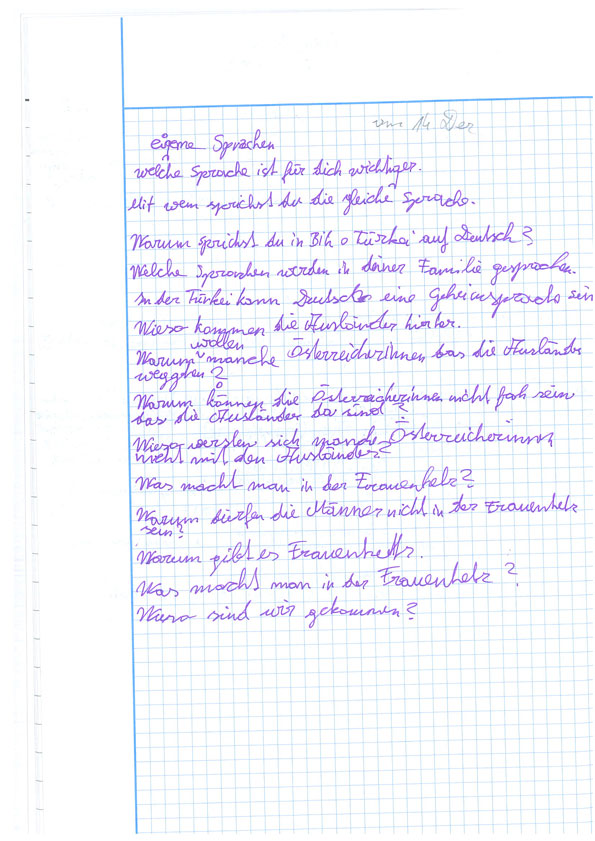 vom 14 Der
eigene Sprachen
welche Sprache ist für dich wichtiger.
Mit wem sprichst du die gleiche Sprache.
Warum sprichst du in Bih o Türkei auf Deutsch?
Welche Sprachen werden in deiner Familie gesprochen.
In der Türkei kann Deutsch eine Geheimsprache sein
Wieso kommen die Ausländer hierher.
wollen
Warum manche ÖsterreicherInnen das die Ausländer
weggehen?
Warum können die Österreicherinnen nicht froh sein
das die Ausländer da sind?
Wieso sich manche Österreicherinnen
nicht mit den Ausländer?
Was macht man in der Frauenhetz?
Warum dürfen die Männer nicht in der Frauenhetz
sein?
Warum gibt es
Was macht man in der Frauenhetz?
Wieso sind wir gekommen?